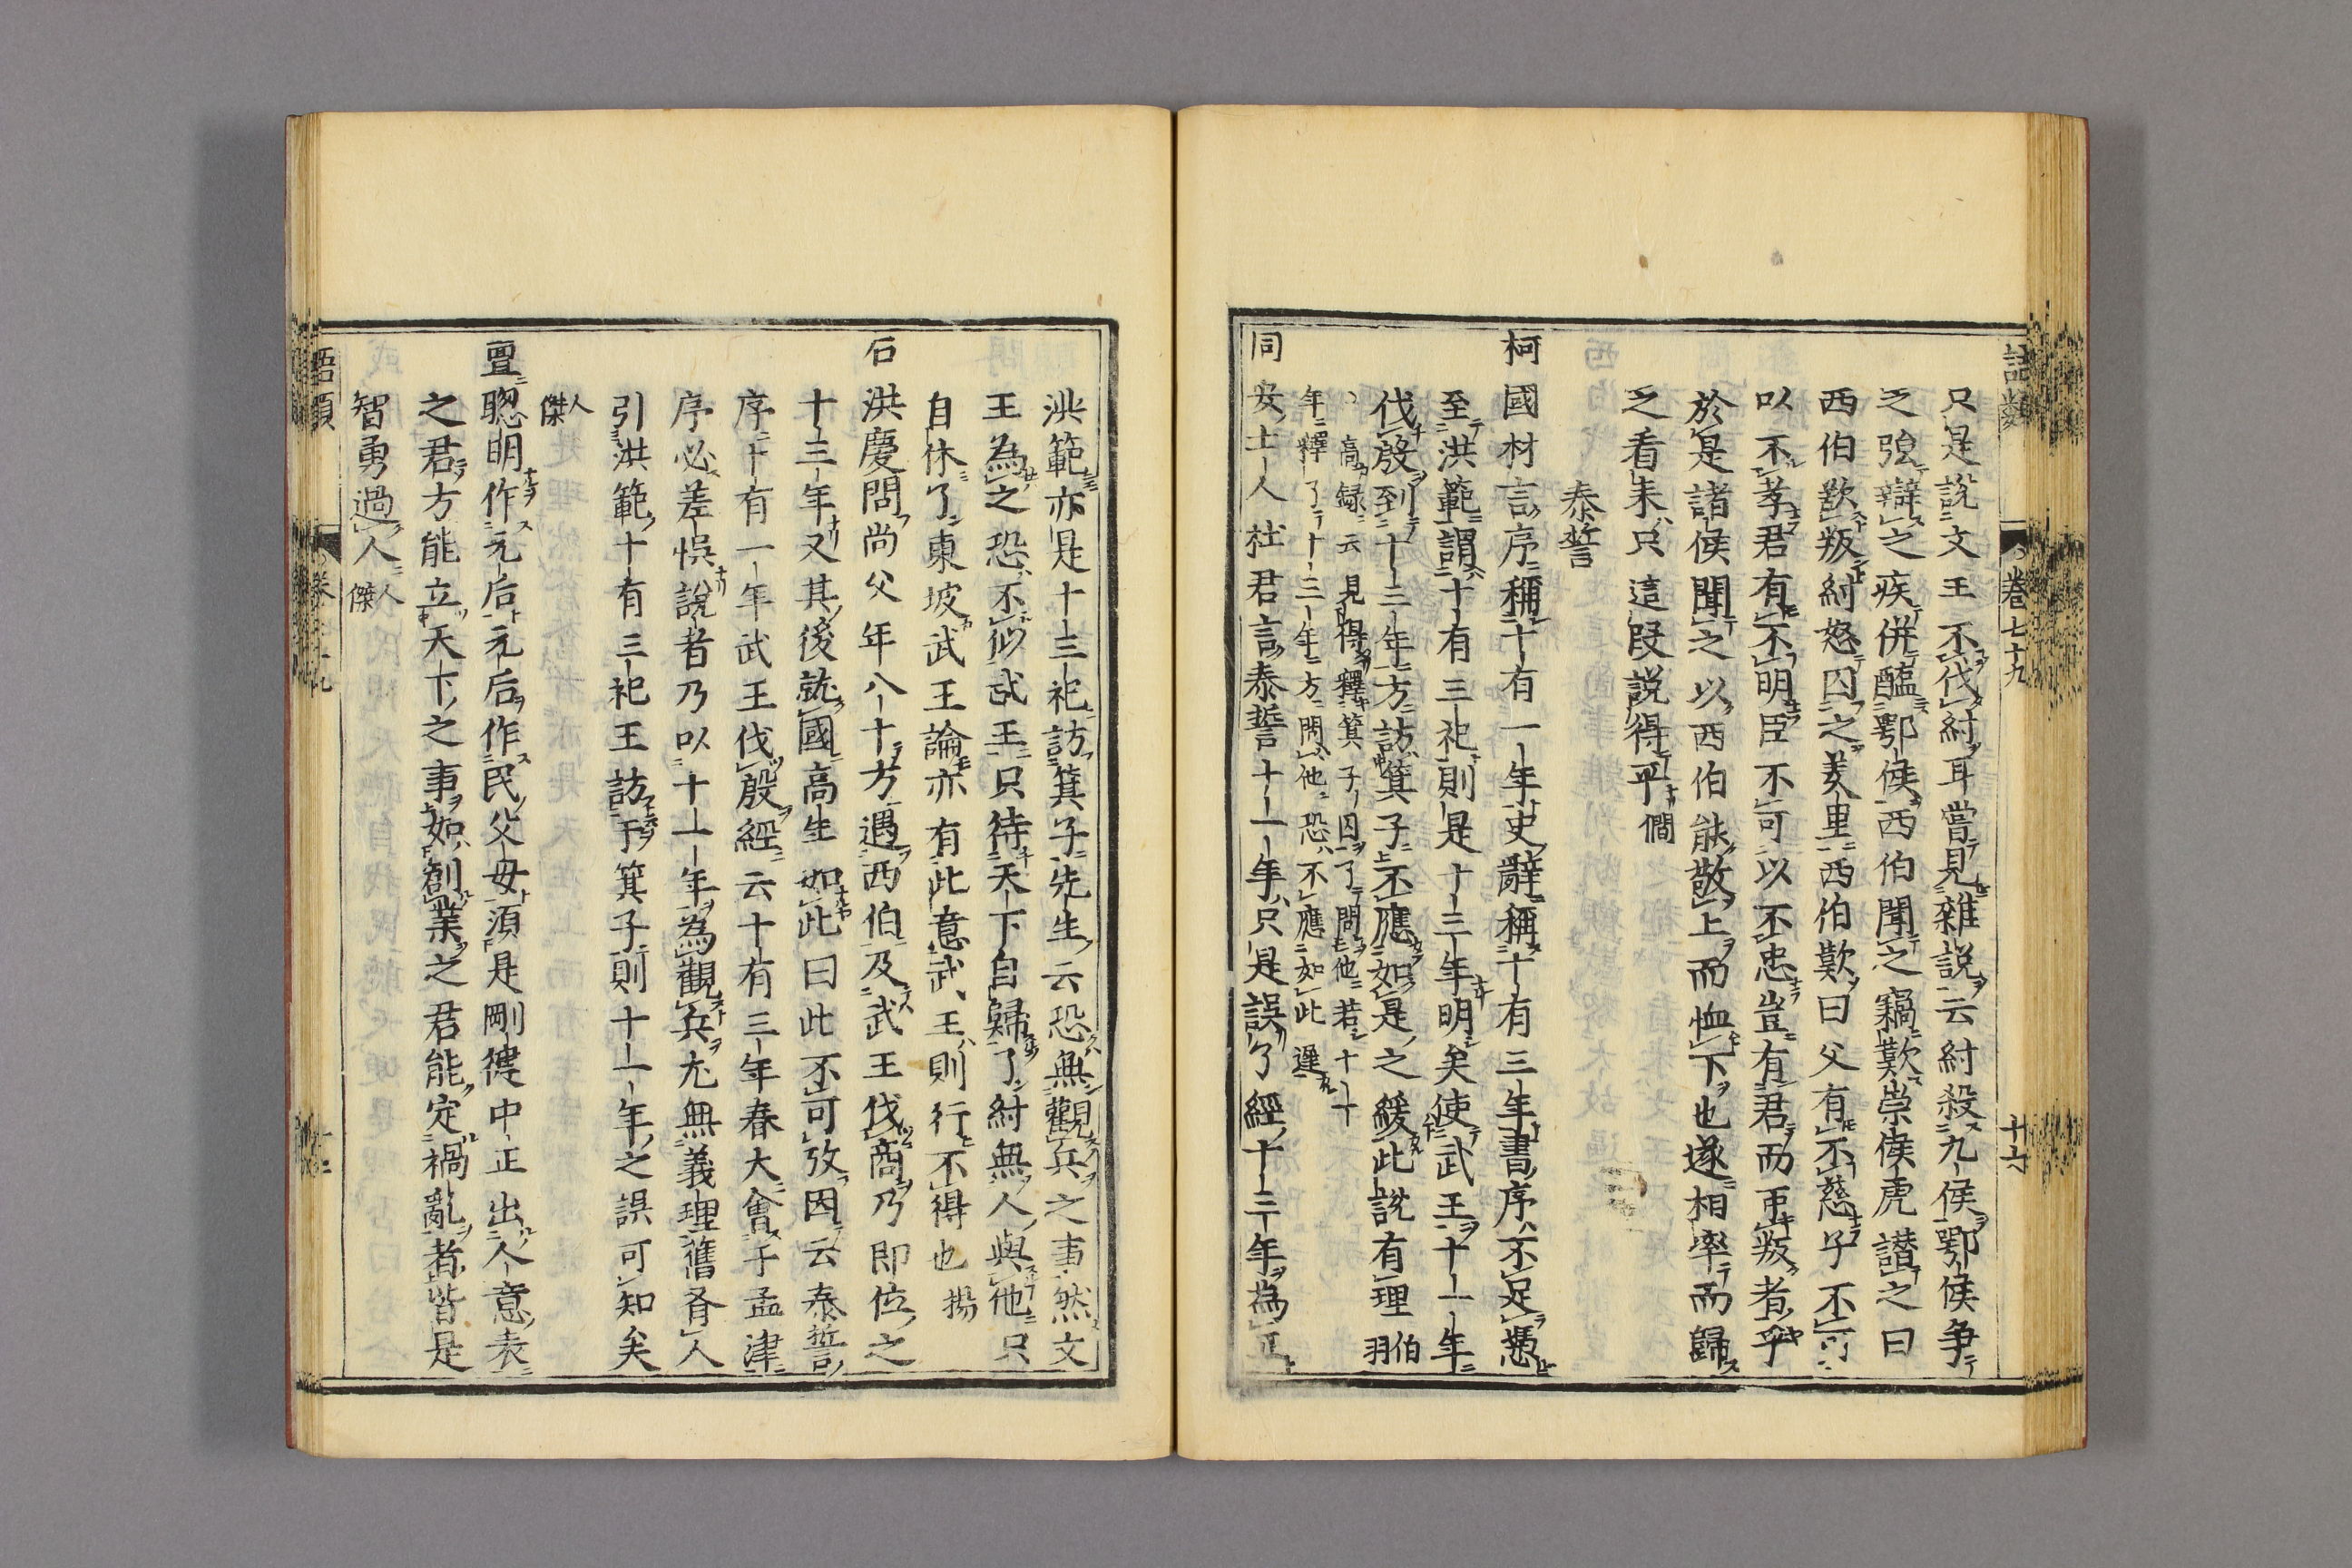 語類 卷七十九 十六
只是說文王不伐紂耳嘗見雜說云紂殺九侯鄂侯爭
之强辯之疾併醢鄂侯西伯聞之竊歎崇侯虎譖之曰
西伯歎叛紂怒囚之羑里西伯歎曰父有不慈子不可
以不孝君有不明臣不可以不忠豈有君而可叛者乎
於是諸侯聞之以西伯能敬上而恤下也遂相率而歸
之看来只這叚説得平 僩
泰誓
柯國材言序稱十有一年史辭稱十有三年書序不足憑
至洪範謂十有三祀則是十三年明矣使武王十一年
伐殷到十三年方訪箕子不應如是之緩此說有理 伯羽
高録云見得釋箕子囚了問他若十一
年釋了十三年方問他恐不應如此遲
同安士人杜君言泰誓十一年只是誤了經十三年為正
洪範亦是十三祀訪箕子先生云恐無觀兵之事然文
王為之恐不似武王只待天下自歸了紂無人與他只
自休了東坡武王論亦有此意武王則行不得也 揚
石洪慶問尚父年八十方遇西伯及武王伐商乃即位之
十三年又其後就國高年如此曰此不可攷因云泰誓
序十有一年武王伐殷經云十有三年春大會于孟津
序必差悞說者乃以十一年為觀兵尤無義理舊有人
引洪範十有三祀王訪于箕子則十一年之誤可知矣
人傑
亶聰明作元后元后作民父母須是剛健中正出人意表
之君方能立天下之事如創業之君能定禍亂者皆是
智勇過人 人傑
語類